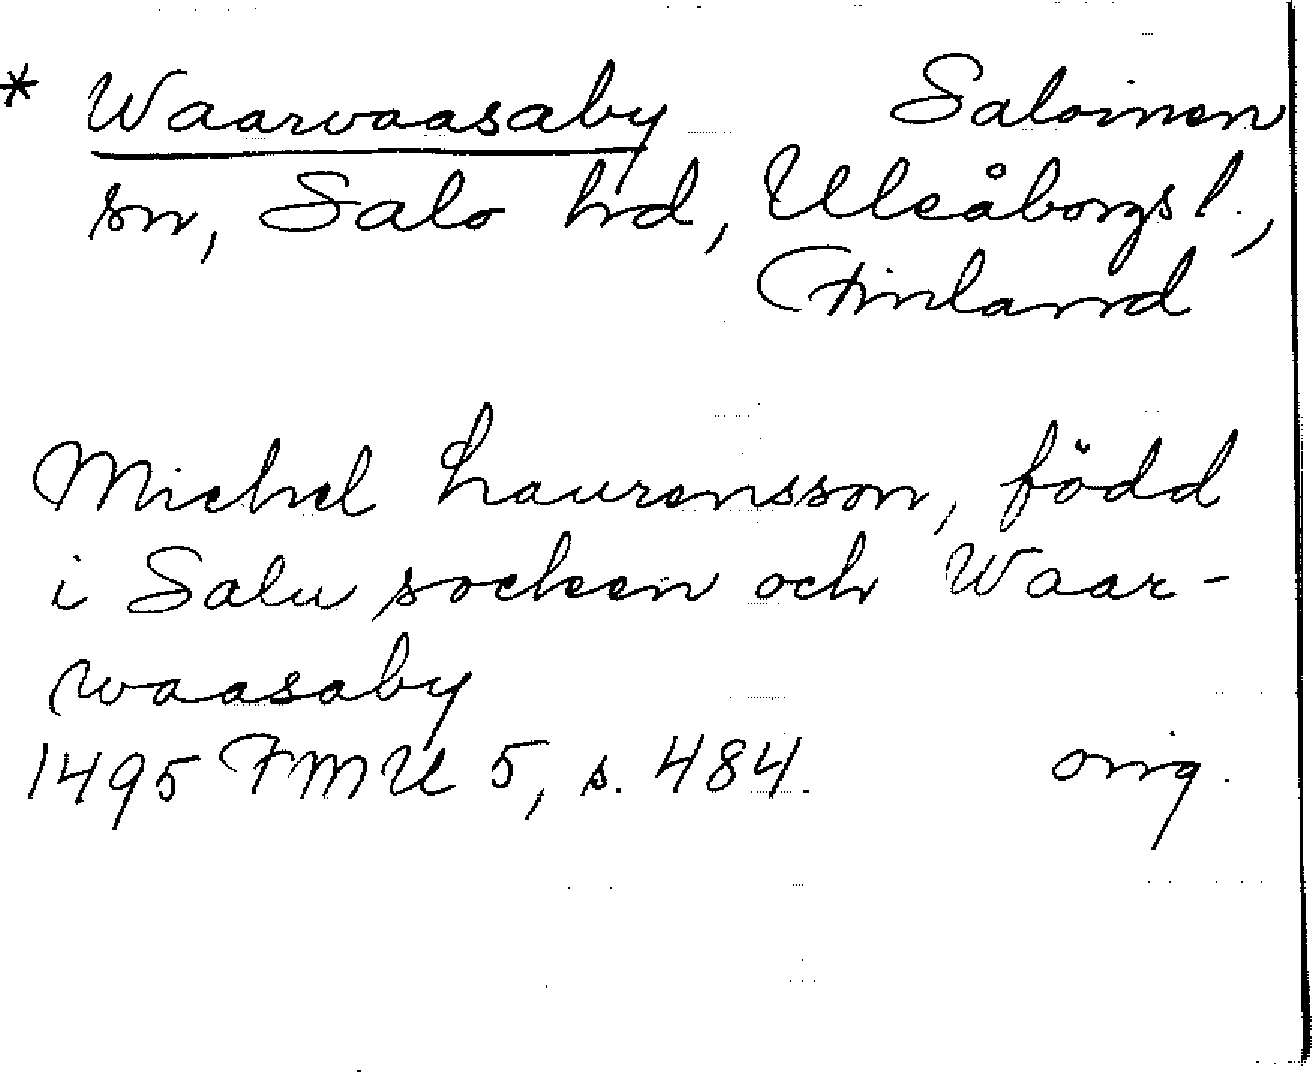 * Waarwaasaby Saloinen
sn, Salo hd, Uleåborgs l.,
Finland
Michel Laurensson, född
i Salu socken och Waar-
waasaby
1495 FMU 5, s. 484. orig.